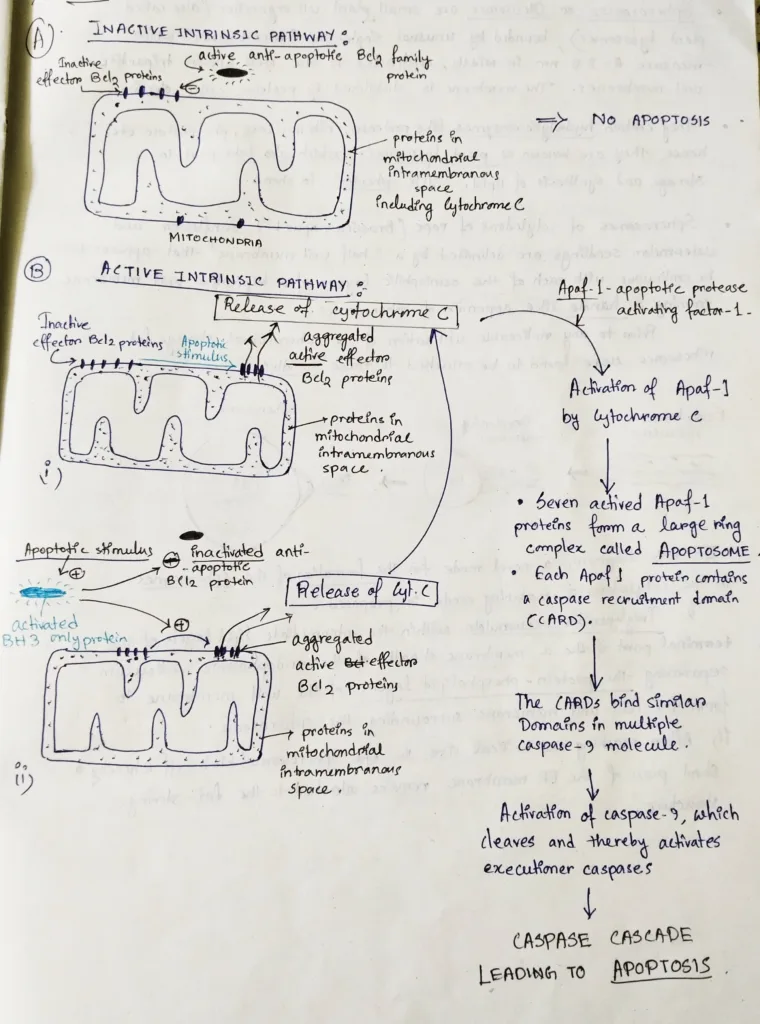 A
INACTIVE INTRINSIC PATHWAY :
Inactive
effector Bcl2 proteins
active anti-apoptotic Bcl2 family
protein
⊖
⇒ NO APOPTOSIS
proteins in
mitochondrial
intramembranous
space
including Cytochrome C
MITOCHONDRIA
B
ACTIVE INTRINSIC PATHWAY :
Release of cytochrome C
Inactive
effector Bcl2 proteins
Apoptotic
stimulus
aggregated
active effector
Bcl2 proteins
proteins in
mitochondrial
intramembranous
space .
i)
Apoptotic stimulus
⊕
⊖
inactivated anti-
-apoptotic
Bcl2 protein
activated
BH3 only protein
⊕
Release of Cyt. C
aggregated
active Bcl effector
Bcl2 proteins
proteins in
mitochondrial
intramembranous
space .
ii)
Apaf-1 - apoptotic protease
activating factor-1 -
Activation of Apaf-1
by Cytochrome C
• Seven actived Apaf-1
proteins form a large ring
complex called APOPTOSOME .
• Each Apaf 1 protein contains
a caspase recruitment domain
(CARD).
The CARDs bind similar
Domains in multiple
caspase-9 molecule .
Activation of caspase-9, which
cleaves and thereby activates
executioner caspases
CASPASE CASCADE
LEADING TO APOPTOSIS .